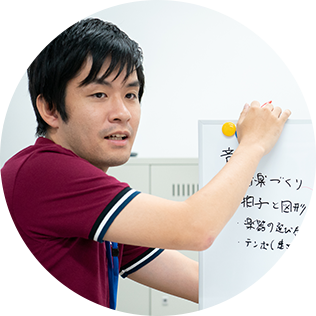 音
楽づくり
拍子と図形
・楽器の選び方
・テンポ